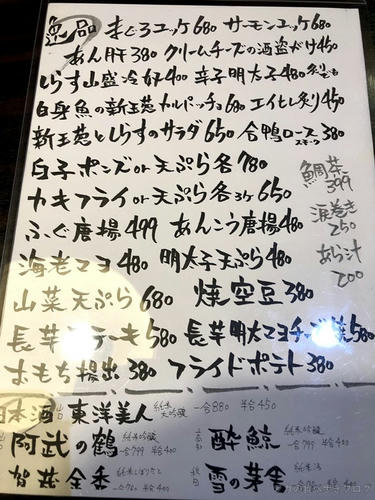 逸品 まぐろユッケ680 サーモンユッケ680
あん肝380 クリームチーズの酒盗がけ450
しらす山盛冷奴400 辛子明太子480 炙りも
白身魚の新玉葱カルパッチョ680 エイヒレ炙り450
新玉葱としらすのサラダ650 合鴨ロース スモーク380
白子ポンズor天ぷら各780
鯛茶
399
カキフライor天ぷら各3ケ650
涙巻き
250
ふぐ唐揚499 あんこう唐揚480
あら汁
200
海老マヨ480 明太子天ぷら480
山菜天ぷら680 焼空豆380
長芋ステーキ580 長芋明太マヨチーズ焼580
おもち揚出380 フライドポテト380
日本酒 東洋美人 純米大吟醸 一合880 半合450
阿武の鶴 純米吟醸 一合799 半合400
酔鯨 純米吟醸 一合799 半合400
賀茂金秀
雪の茅舎